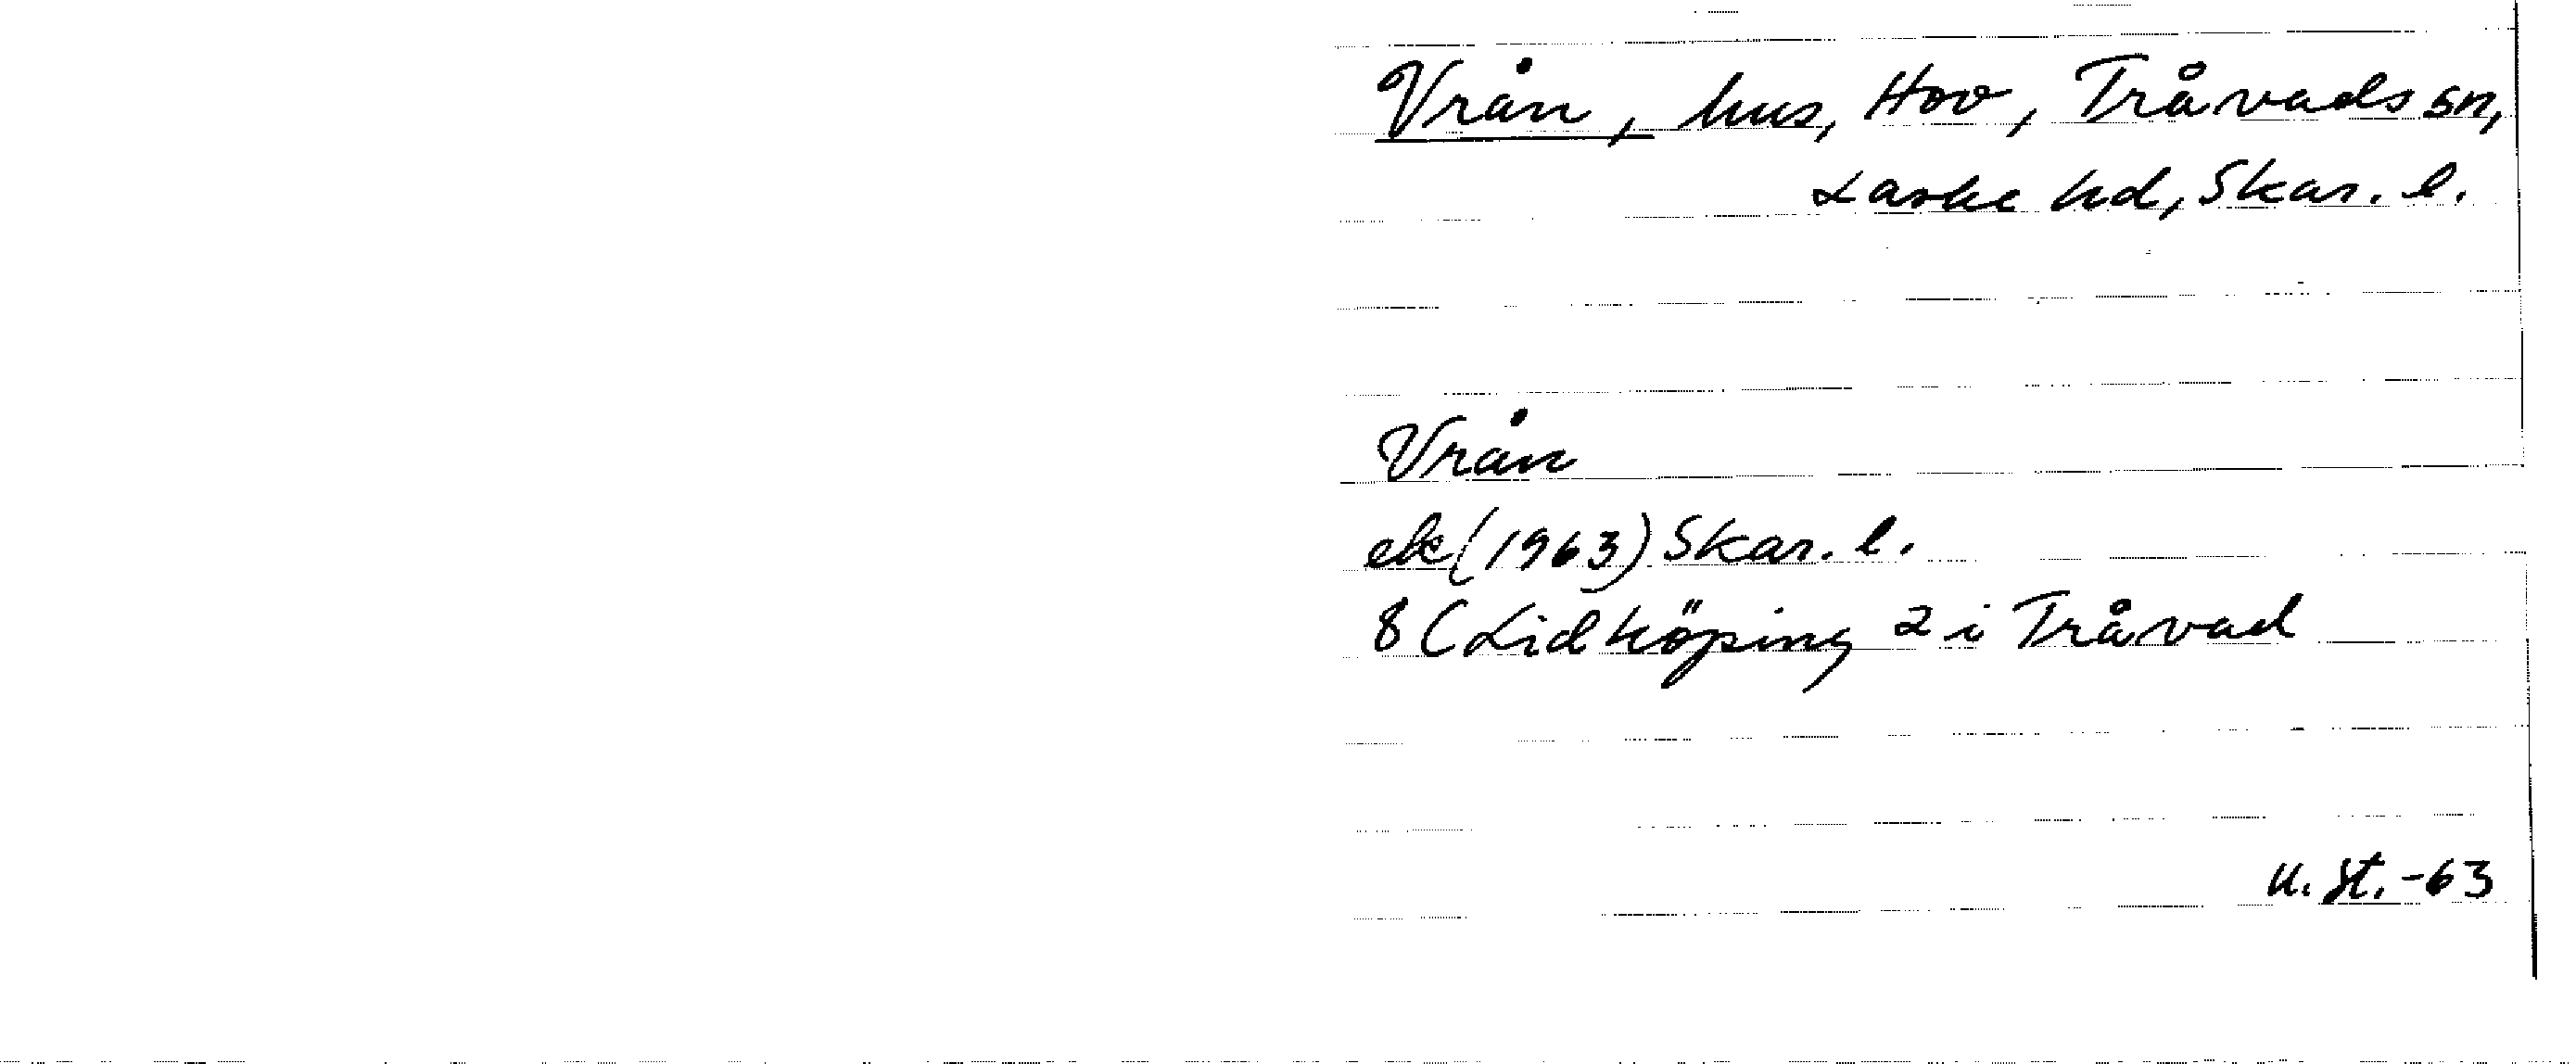 Vrån, hus, Hov, Tråvads sn,
Laske hd, Skar. l.
Vrån
ek (1963) Skar. l.
8 C Lidköping 2 i Tråvad
u. st. -63